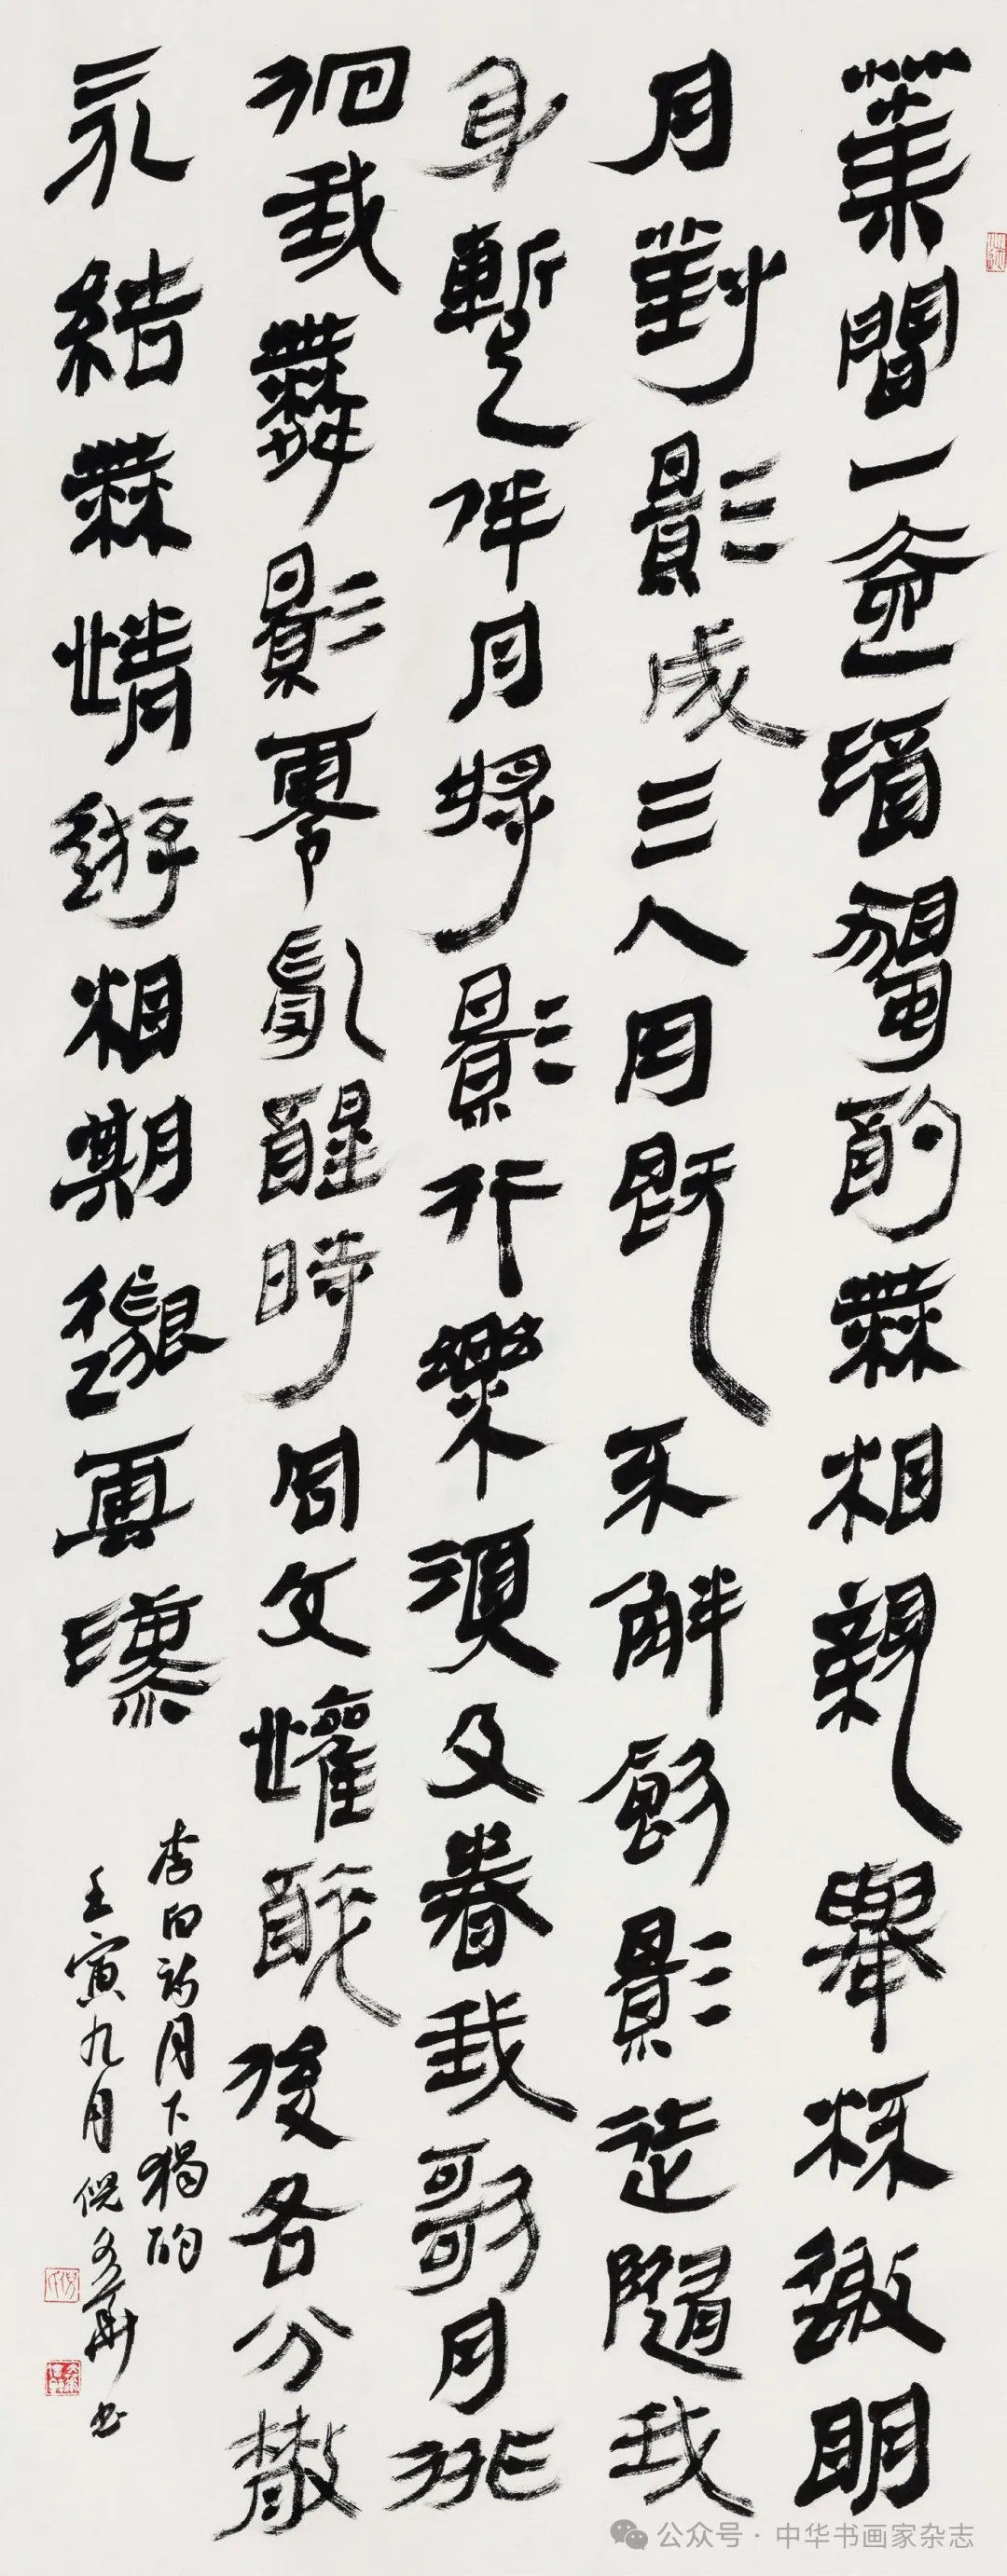 葉間一壺酒獨酌無相親舉杯邀明
月對影成三人月既不解飲影徒隨我
身暫伴月將影行樂須及春我歌月徘
徊我舞影零亂醒時同交歡醉後各分散
永結無情遊相期邈雲漢
李白詩月下獨酌
壬寅九月倪文華書
公众号·中华书画家杂志